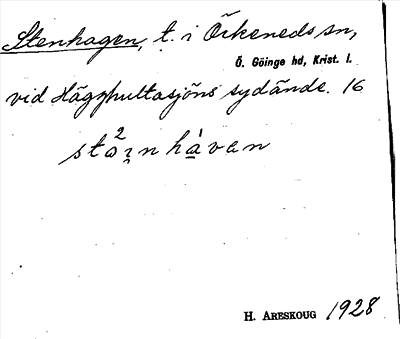 Stenhagen, t. i Örkeneds sn,
Ö. Göinge hd, Krist. l.
vid Hägghultasjöns sydände. 16
H. Areskoug 1928